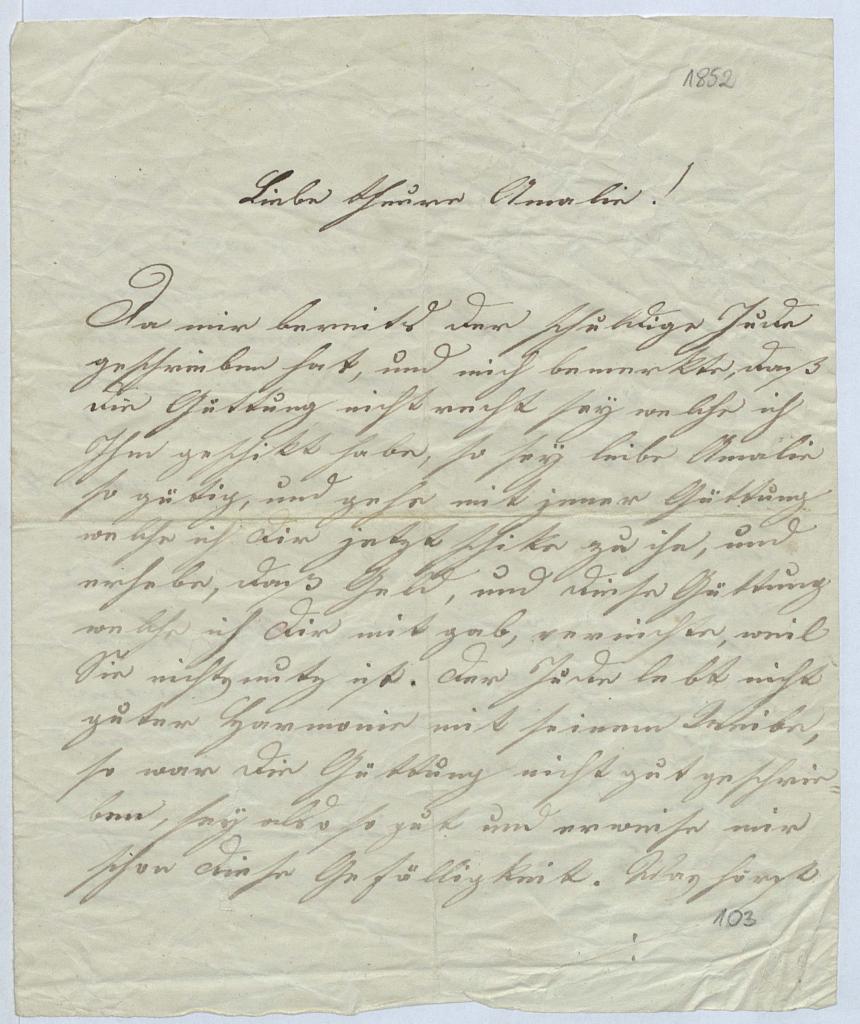 1852
Liebe theure Amalie!
Da mir bereits der schuldige Jude
geschrieben hat, und mich bemerkte, daß
die Guttung nicht recht sey welche ich
Ihm geschikt habe, so sey leibe Amalie
so gütig, und gehe mit jener Guttung
welche ich dir jetzt schike zu ihn, und
erhebe, daß Geld, und diese Guttung
welche ich dir mit gab, vernichte, weil
Sie nichtznutz ist. Der Jude lebt nicht
guter Harmonie mit seinem Weibe,
so war die Guttung nicht gut geschrie=
ben, sey also so gut und erweise mir
schon diese Gefälligkeit. Was hörst
103